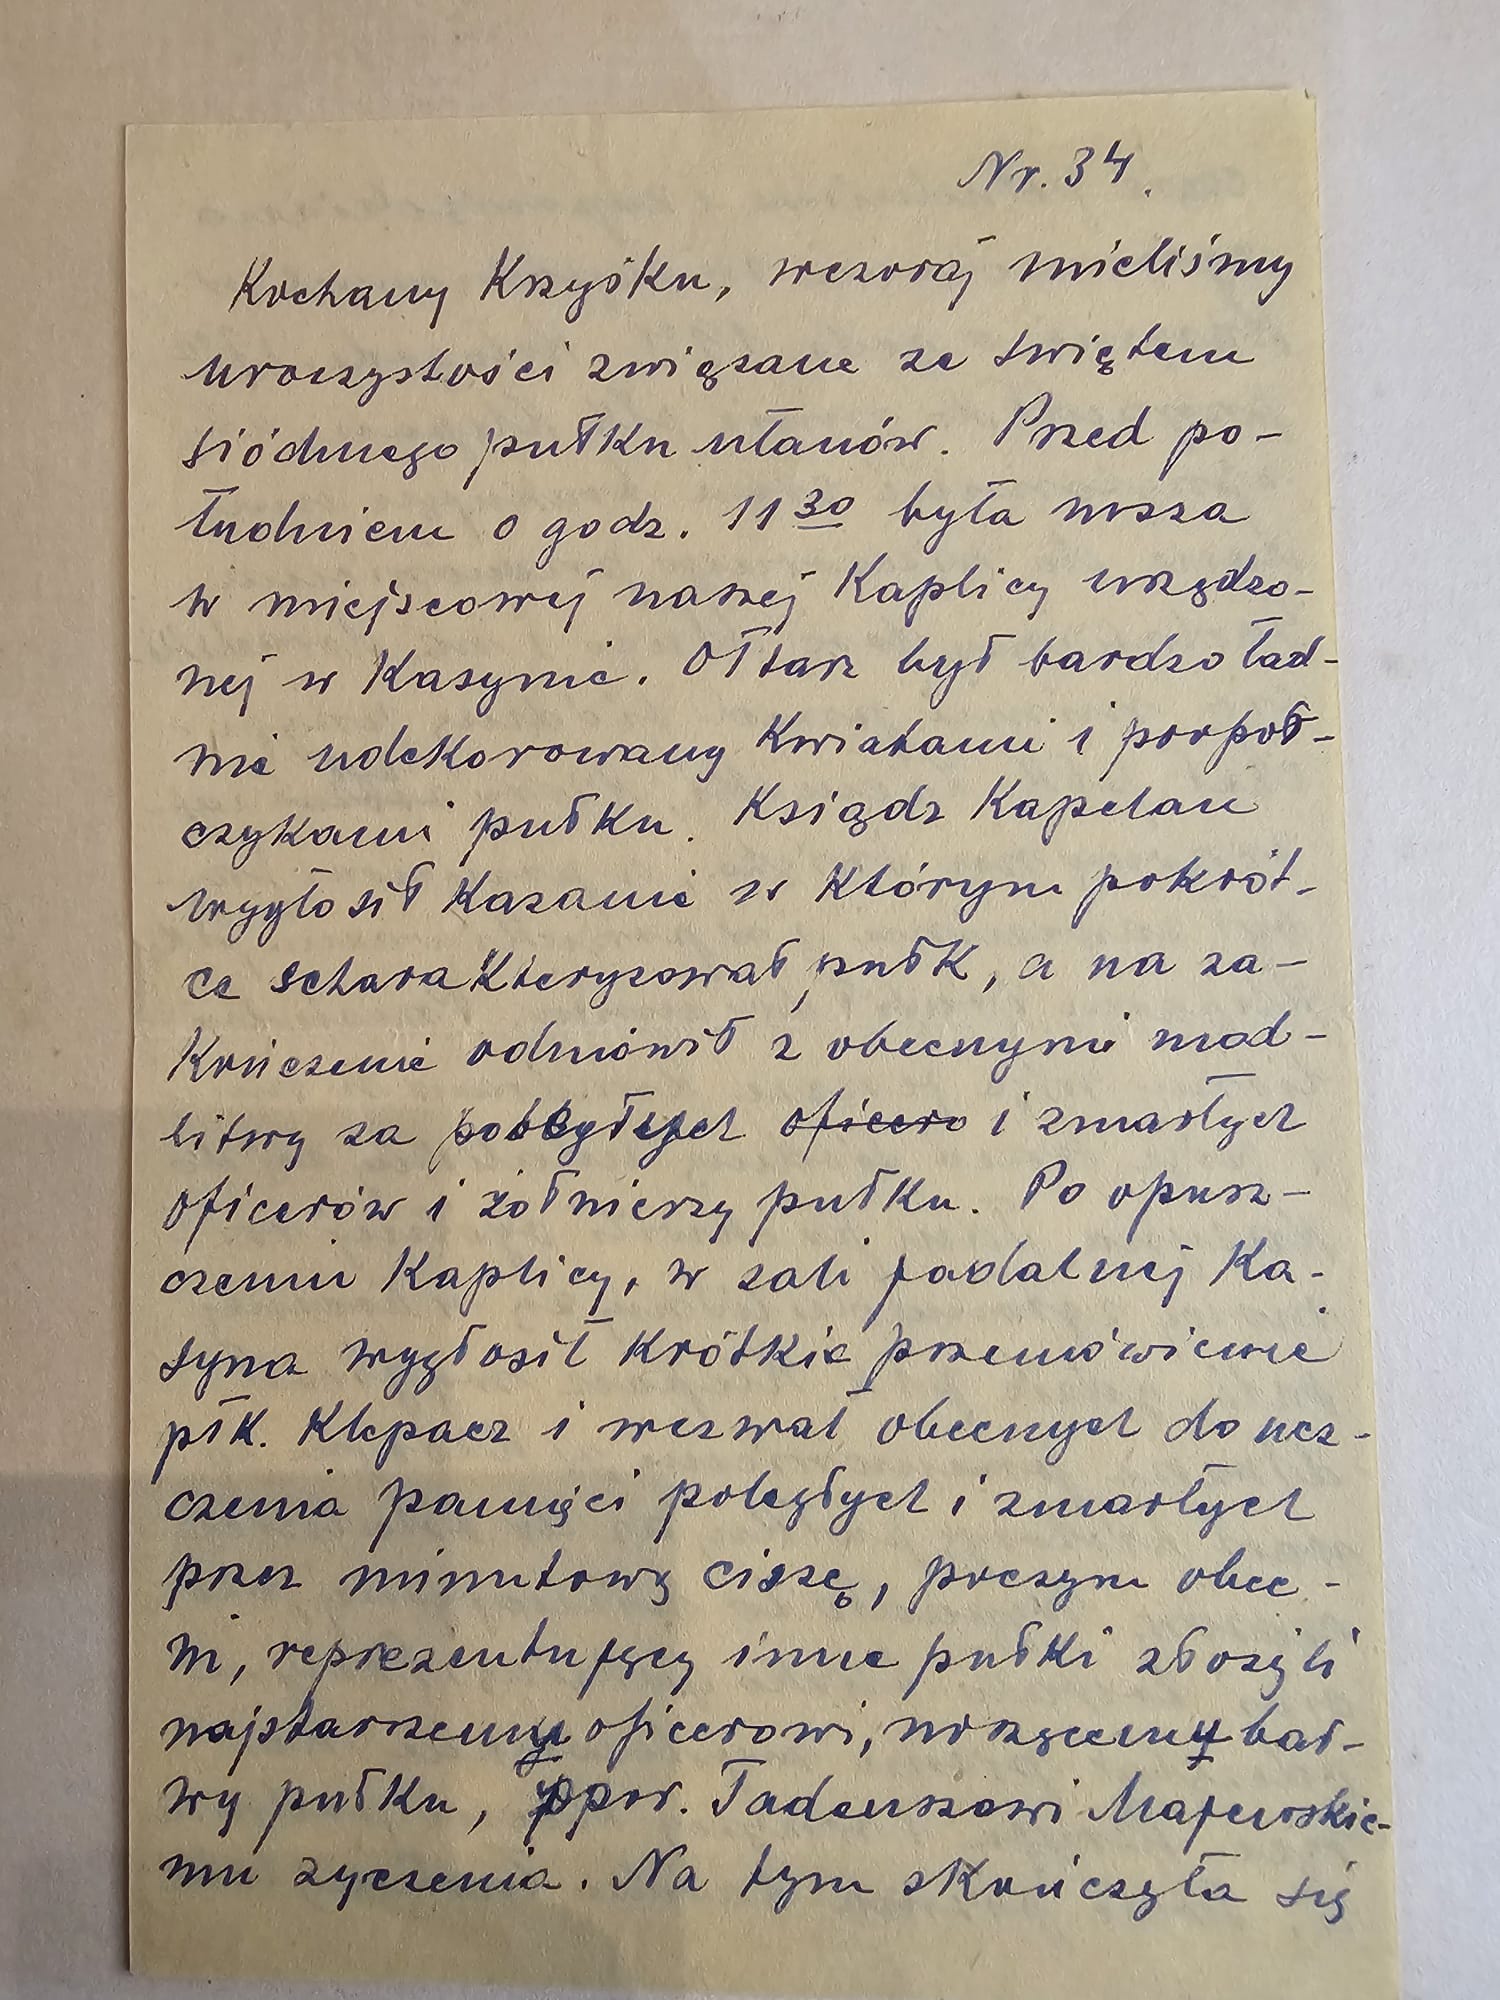 Nr. 34.
Kochany Krzyśku, wczoraj mieliśmy
uroczystości związane ze świętem
siódmego pułku ułanów. Przed po-
łudniem o godz. 11 30 była msza
w miejscowej naszej Kaplicy urządzo-
nej w Kasynie. Ołtarz był bardzo ład-
nie udekorowany Kwiatami i porpoł-
czykami pułku. Ksiądz Kapelan
wygłosił Kazanie w Którym pokrót-
ce scharakteryzował pułk, a na za-
Kończenie odmówił z obecnymi mod-
litwy za poległych oficero i zmarłych
oficerów i żołnierzy pułku. Po opusz-
czeniu Kaplicy, w sali jadalnej Ka-
syna wygłosił Krótkie przemówienie
płk. Klepacz i wezwał obecnych do ucz-
czenia pamięci poległych i zmarłych
przez minutową ciszę, poczym obec-
ni, reprezentujący inne pułki złożyli
najstarszemu oficerowi, noszącemu bar-
wy pułku, ppor. Tadeuszowi Majewskie-
mu życzenia. Na tym skończyła się